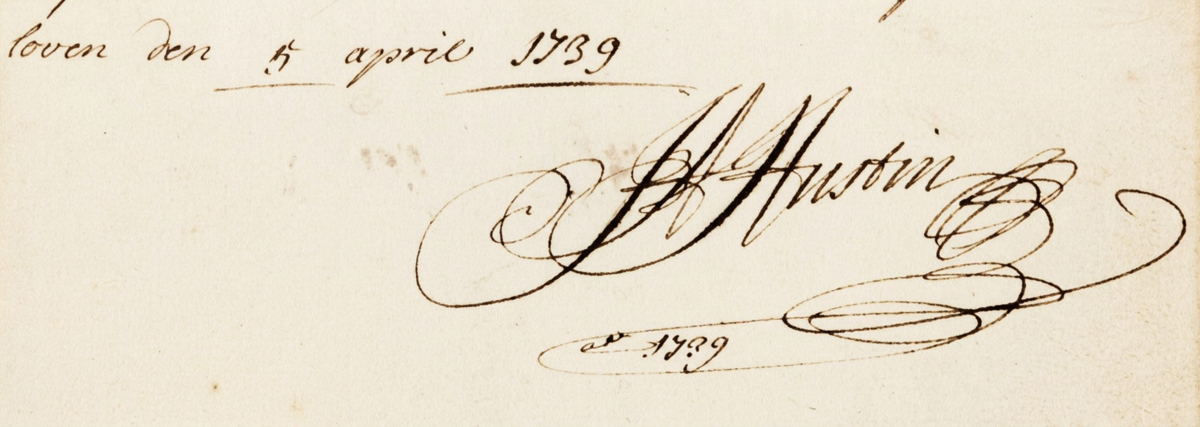 loven den 5 april 1739
JA Hustin
ao 1739